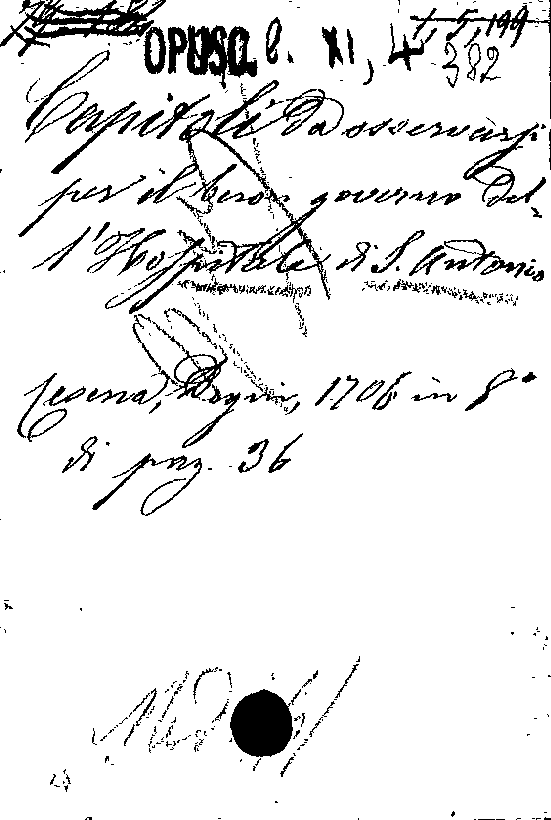 1, 5, 199
OPUSC. C. XI, 4
382
Capitoli da osservarsi
per il buon governo del-
l'Hospitale di S. Antonio
Cesena, 1706 in 8°
di pag. 36